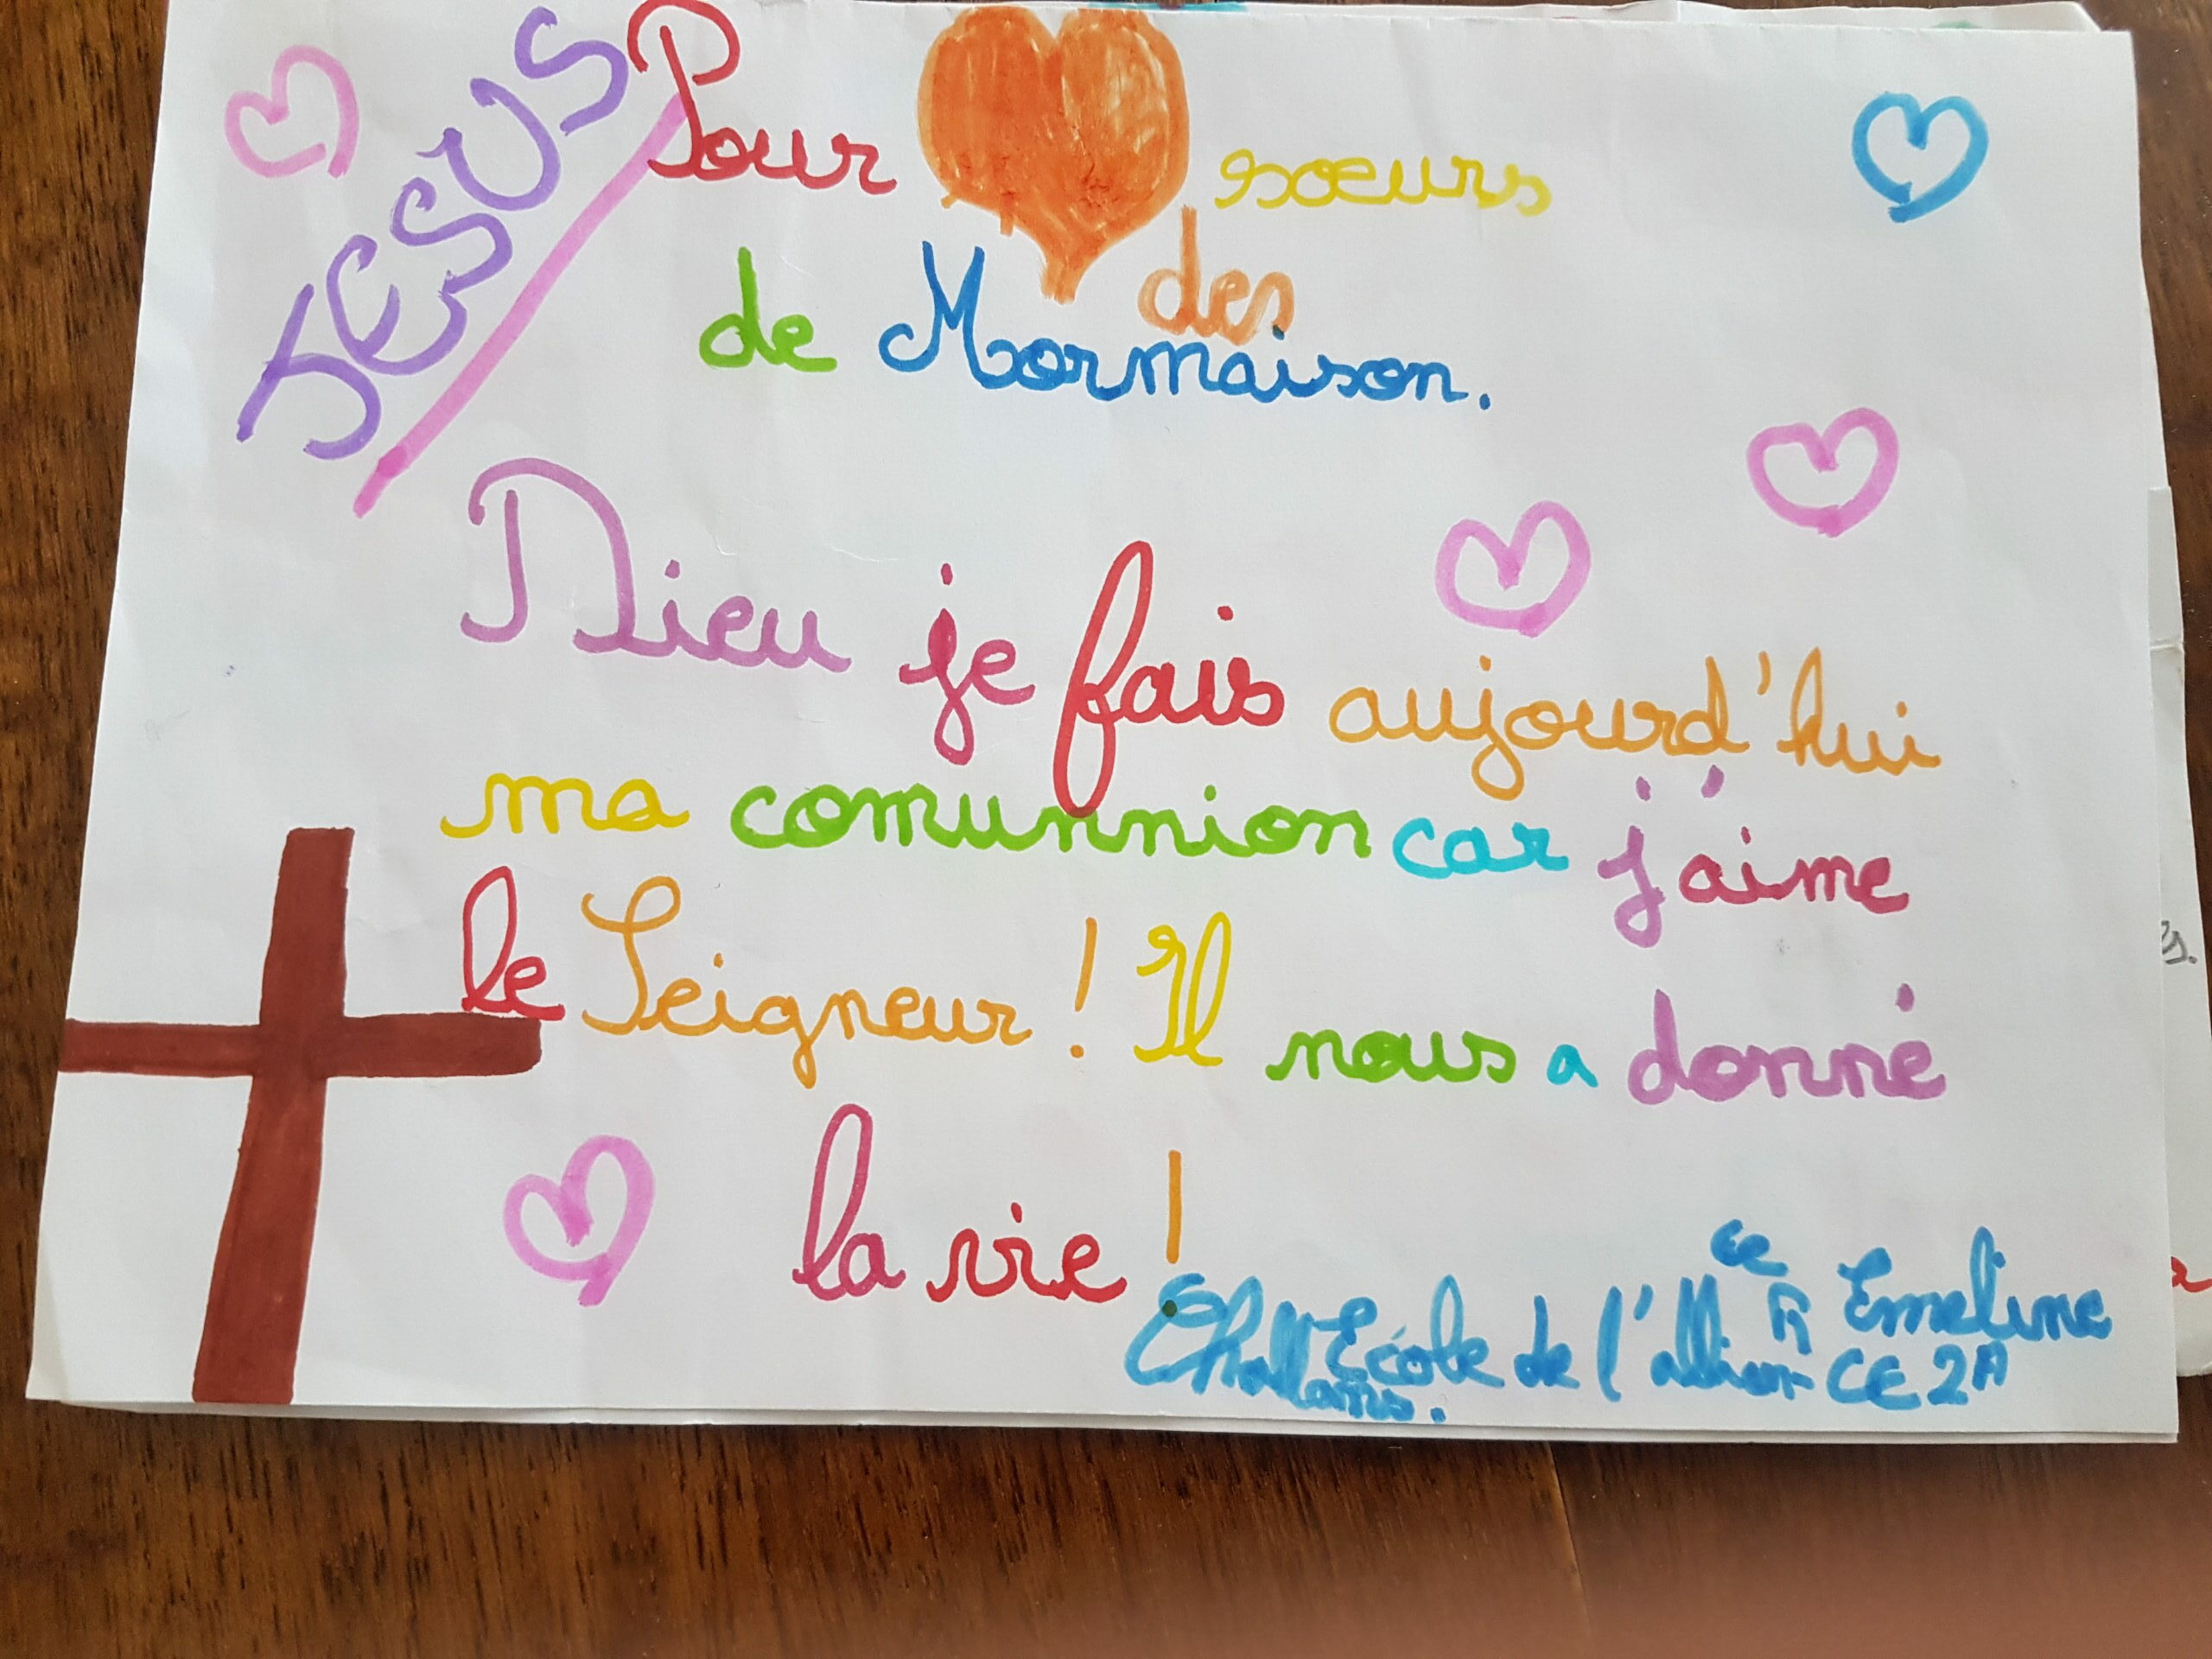 JESUS
Pour soeurs
des
de Mormaison.
Dieu je fais aujourd'hui
ma comunnion car j'aime
le Seigneur ! Il nous a donné
la vie !
Emeline
École de l'albior CE2A
Challans.